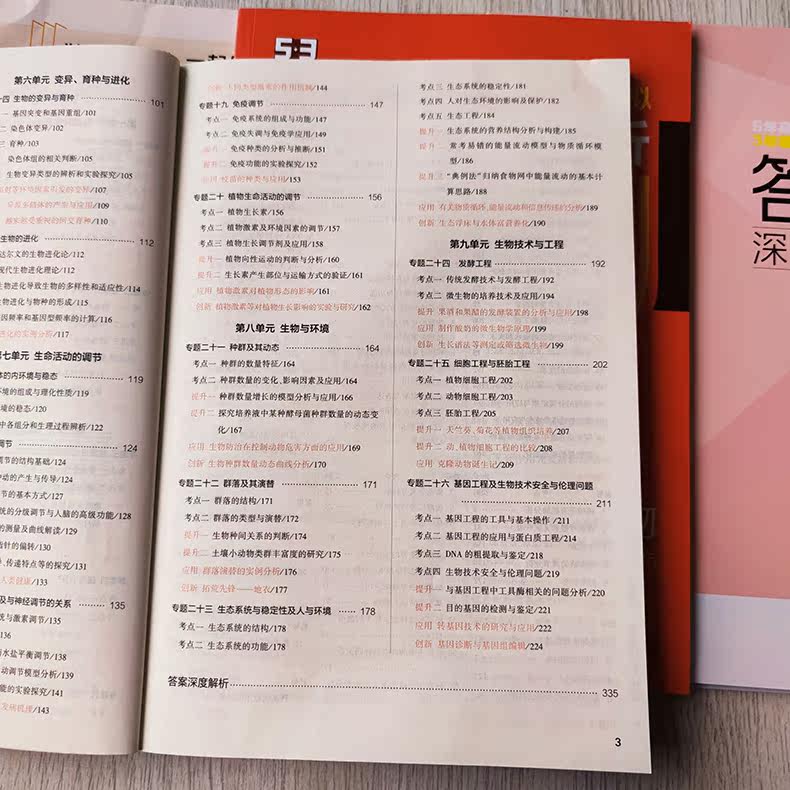 第六单元 变异、育种与进化
十四 生物的变异与育种 101
一 基因突变和基因重组/101
二 染色体变异/102
三 育种/103
染色体组的相关判断/105
生物变异类型的辨析和实验探究/105
生物的进化 112
达尔文的生物进化论/112
现代生物进化理论/112
生物进化导致生物的多样性和适应性/114
生物进化与物种的形成/115
因频率和基因型频率的计算/116
进化的实例分析/117
第七单元 生命活动的调节
体的内环境与稳态 119
环境的组成与理化性质/119
境的稳态/120
中各组分和生理过程辨析/122
调节 124
调节的结构基础/124
冲动的产生与传导/124
节的基本方式/127
统的分级调节与人脑的高级功能/128
的测量及曲线解读/129
指针的偏转/130
、传递特点等的探究/131
人类健康/133
及与神经调节的关系 135
素与激素调节/135
水盐平衡调节/138
动调节模型分析/139
能的实验探究/141
发病机理/143
创新 不同类型激素的作用机制/144
专题十九 免疫调节 147
考点一 免疫系统的组成与功能/147
考点二 免疫失调与免疫学应用/149
提升一 免疫种类的分析与推断/151
提升二 免疫功能的实验探究/152
应用 疫苗的种类与应用/153
专题二十 植物生命活动的调节 156
考点一 植物生长素/156
考点二 植物激素及环境因素的调节/157
考点三 植物生长调节剂及应用/158
提升一 植物向性运动的判断与分析/160
提升二 生长素产生部位与运输方式的验证/161
应用 植物激素对植物形态的影响/161
创新 植物激素等对植物生长影响的实验与研究/162
第八单元 生物与环境
专题二十一 种群及其动态 164
考点一 种群的数量特征/164
考点二 种群数量的变化、影响因素及应用/164
提升一 种群数量增长的模型分析与应用/166
提升二 探究培养液中某种酵母菌种群数量的动态变
化/167
应用 生物防治在控制动物危害方面的应用/169
创新 生物种群数量动态曲线分析/170
专题二十二 群落及其演替 171
考点一 群落的结构/171
考点二 群落的类型与演替/172
提升一 生物种间关系的判断/174
提升二 土壤小动物类群丰富度的研究/175
应用 群落演替的实例分析/176
创新 拓荒先锋——地衣/177
专题二十三 生态系统与稳定性及人与环境 178
考点一 生态系统的结构/178
考点二 生态系统的功能/178
考点三 生态系统的稳定性/181
考点四 人对生态环境的影响及保护/182
考点五 生态工程/184
提升一 生态系统的营养结构分析与构建/185
提升二 常考易错的能量流动模型与物质循环模
型/186
提升三 “典例法”归纳食物网中能量流动的基本计
算思路/188
应用 有关物质循环、能量流动和信息传递的分析/189
创新 生态浮床与水体富营养化/190
第九单元 生物技术与工程
专题二十四 发酵工程 192
考点一 传统发酵技术与发酵工程/192
考点二 微生物的培养技术及应用/194
提升 果酒和果醋的发酵装置的分析与应用/198
应用 制作酸奶的微生物学原理/199
创新 生长谱法等测定或筛选微生物/199
专题二十五 细胞工程与胚胎工程 202
考点一 植物细胞工程/202
考点二 动物细胞工程/203
考点三 胚胎工程/205
提升一 天竺葵、菊花等植物组织培养/207
提升二 动、植物细胞工程的比较/208
应用 克隆动物诞生记/209
专题二十六 基因工程及生物技术安全与伦理问题
211
考点一 基因工程的工具与基本操作/211
考点二 基因工程的应用与蛋白质工程/214
考点三 DNA的粗提取与鉴定/218
考点四 生物技术安全与伦理问题/219
提升一 与基因工程中工具酶相关的问题分析/220
提升二 目的基因的检测与鉴定/221
应用 转基因技术的研究与应用/222
创新 基因诊断与基因组编辑/224
答案深度解析 335
3
53
答
深